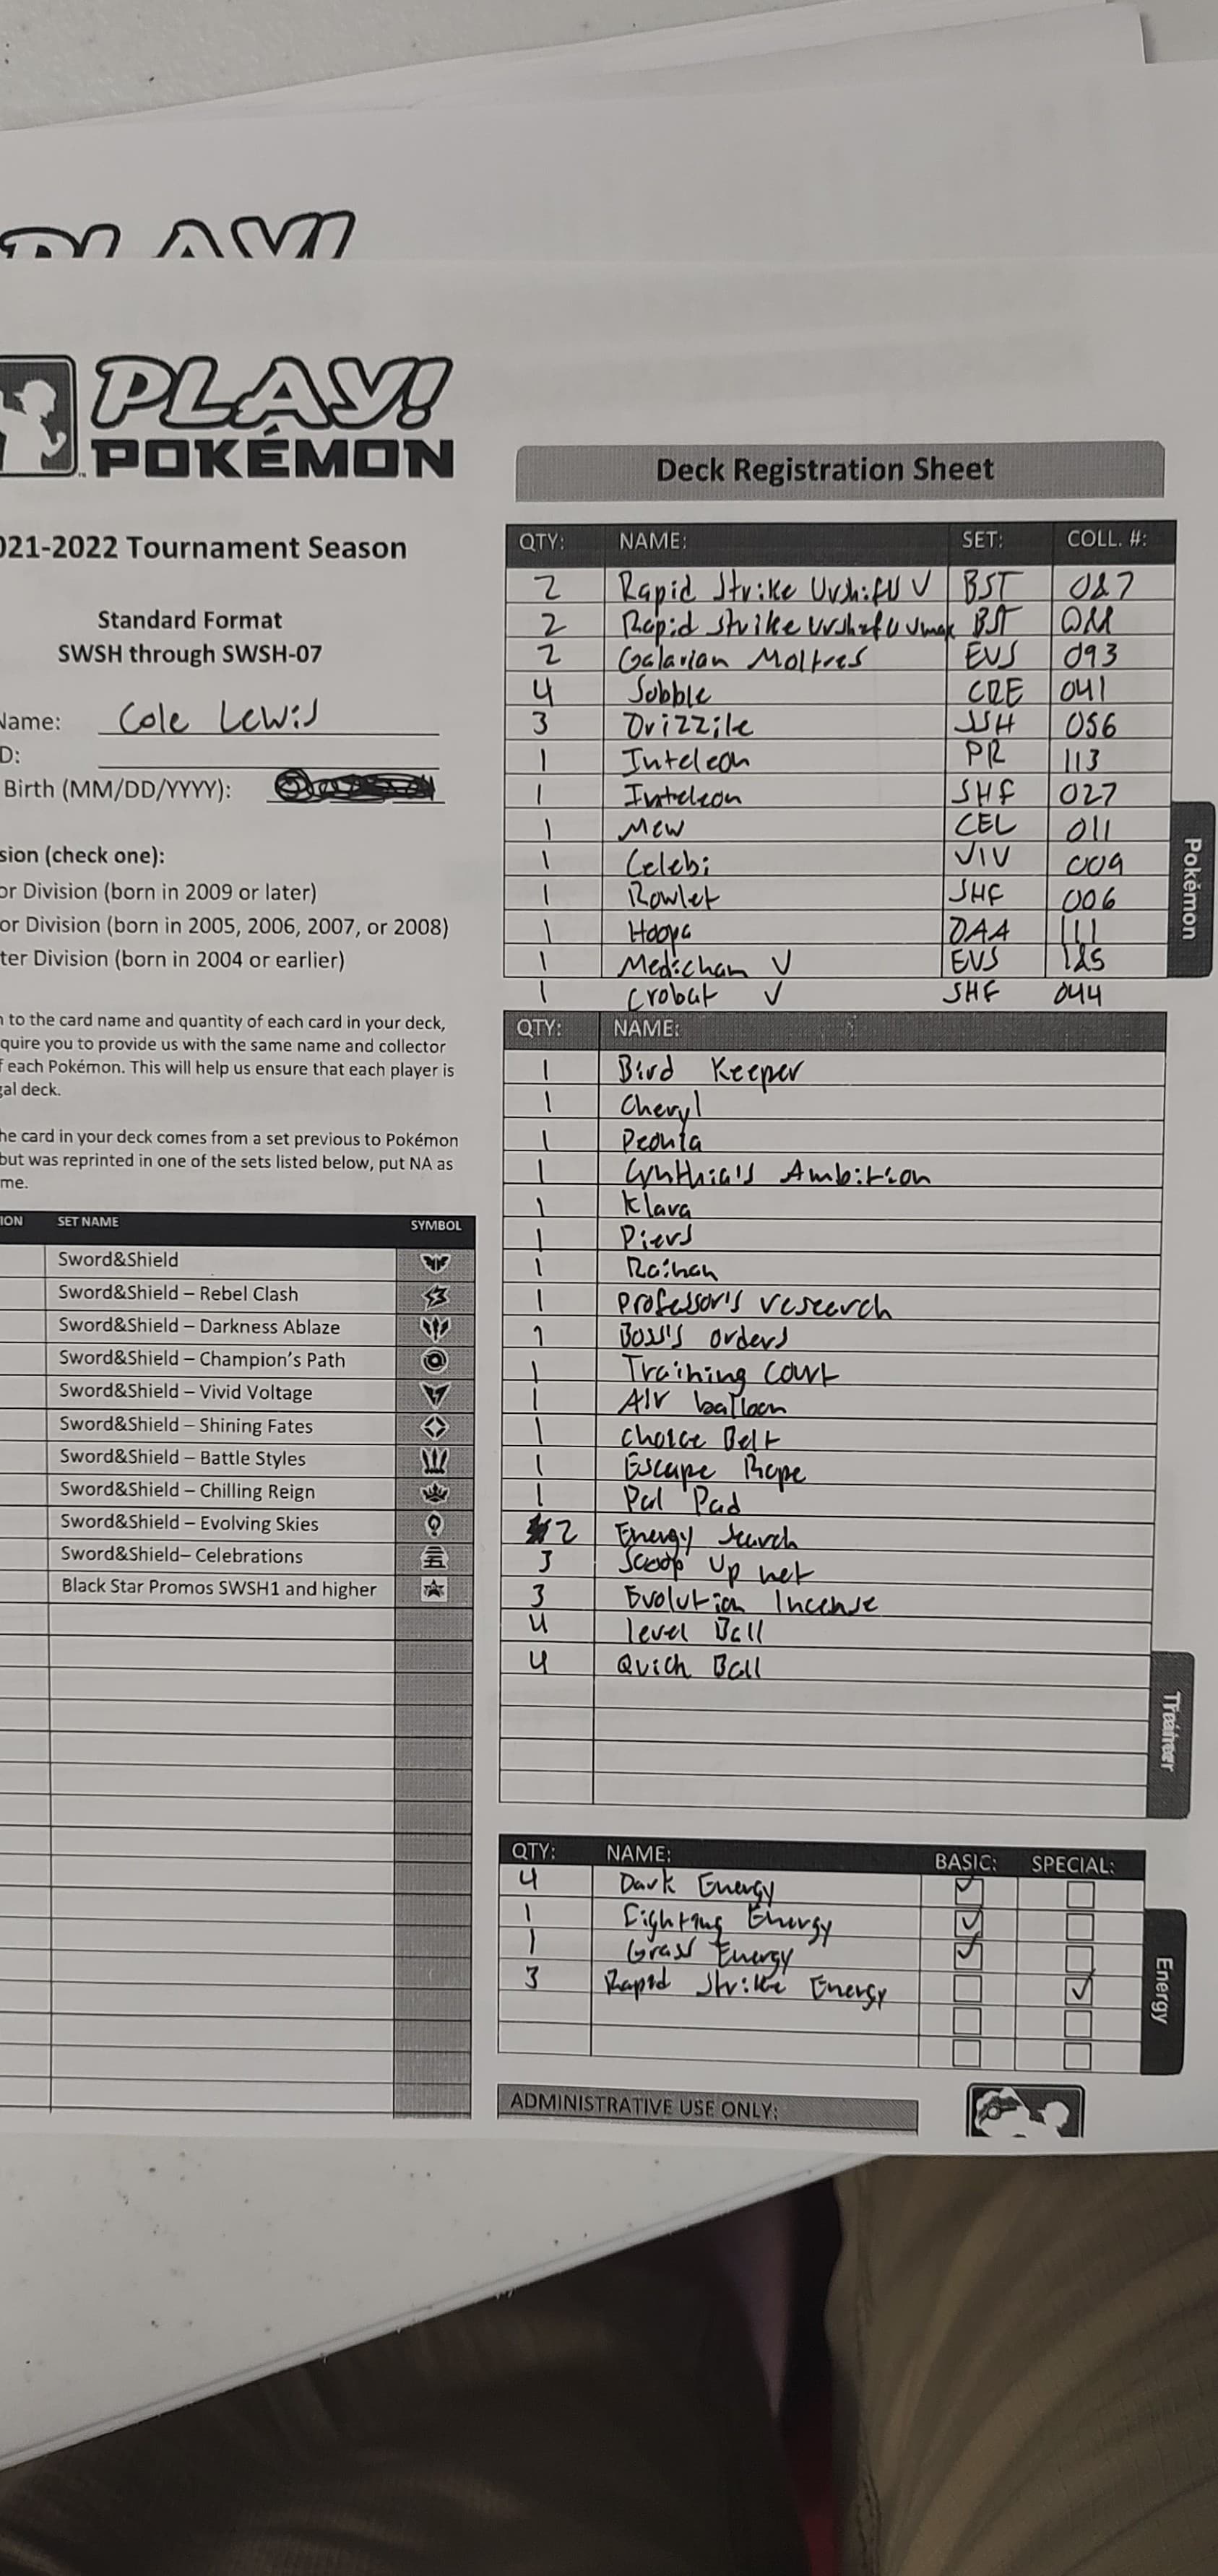 PLAY!
PLAY!
POKÉMON
021-2022 Tournament Season
Standard Format
SWSH through SWSH-07
Name: Cole Lewis
D:
Birth (MM/DD/YYYY):
sion (check one):
or Division (born in 2009 or later)
or Division (born in 2005, 2006, 2007, or 2008)
ter Division (born in 2004 or earlier)
n to the card name and quantity of each card in your deck,
quire you to provide us with the same name and collector
f each Pokémon. This will help us ensure that each player is
gal deck.
he card in your deck comes from a set previous to Pokémon
but was reprinted in one of the sets listed below, put NA as
me.
ION SET NAME SYMBOL
Sword&Shield
Sword&Shield – Rebel Clash
Sword&Shield – Darkness Ablaze
Sword&Shield – Champion's Path
Sword&Shield – Vivid Voltage
Sword&Shield – Shining Fates
Sword&Shield – Battle Styles
Sword&Shield – Chilling Reign
Sword&Shield – Evolving Skies
Sword&Shield– Celebrations
Black Star Promos SWSH1 and higher
Deck Registration Sheet
QTY: NAME: SET: COLL. #:
2 Rapid Strike Urshifu V BST 087
2 Rapid Strike Urshifu Vmax BST
2 Galarian Moltres EVS 093
4 Sobble CRE 041
3 Drizzile SSH 056
1 Inteleon PR 113
1 Inteleon SHF 027
1 Mew CEL 011
1 Celebi VIV 009
1 Rowlet SHF 006
1 Hoopa DAA 111
1 Medicham V EVS
1 Crobat V SHF 044
Pokémon
QTY: NAME:
1 Bird Keeper
1 Cheryl
1 Peonia
1 Cynthia's Ambition
1 Klara
1 Piers
1 Raihan
1 Professor's research
1 Boss's orders
1 Training Court
1 Air balloon
1 Choice Belt
1 Escape Rope
1 Pal Pad
2 Energy search
3 Scoop Up net
3 Evolution Incense
4 level Ball
4 Quich Ball
Trainer
QTY: NAME: BASIC: SPECIAL:
4 Dark Energy
1 Fighting Energy
1 Grass Energy
3 Rapid Strike Energy
Energy
ADMINISTRATIVE USE ONLY: